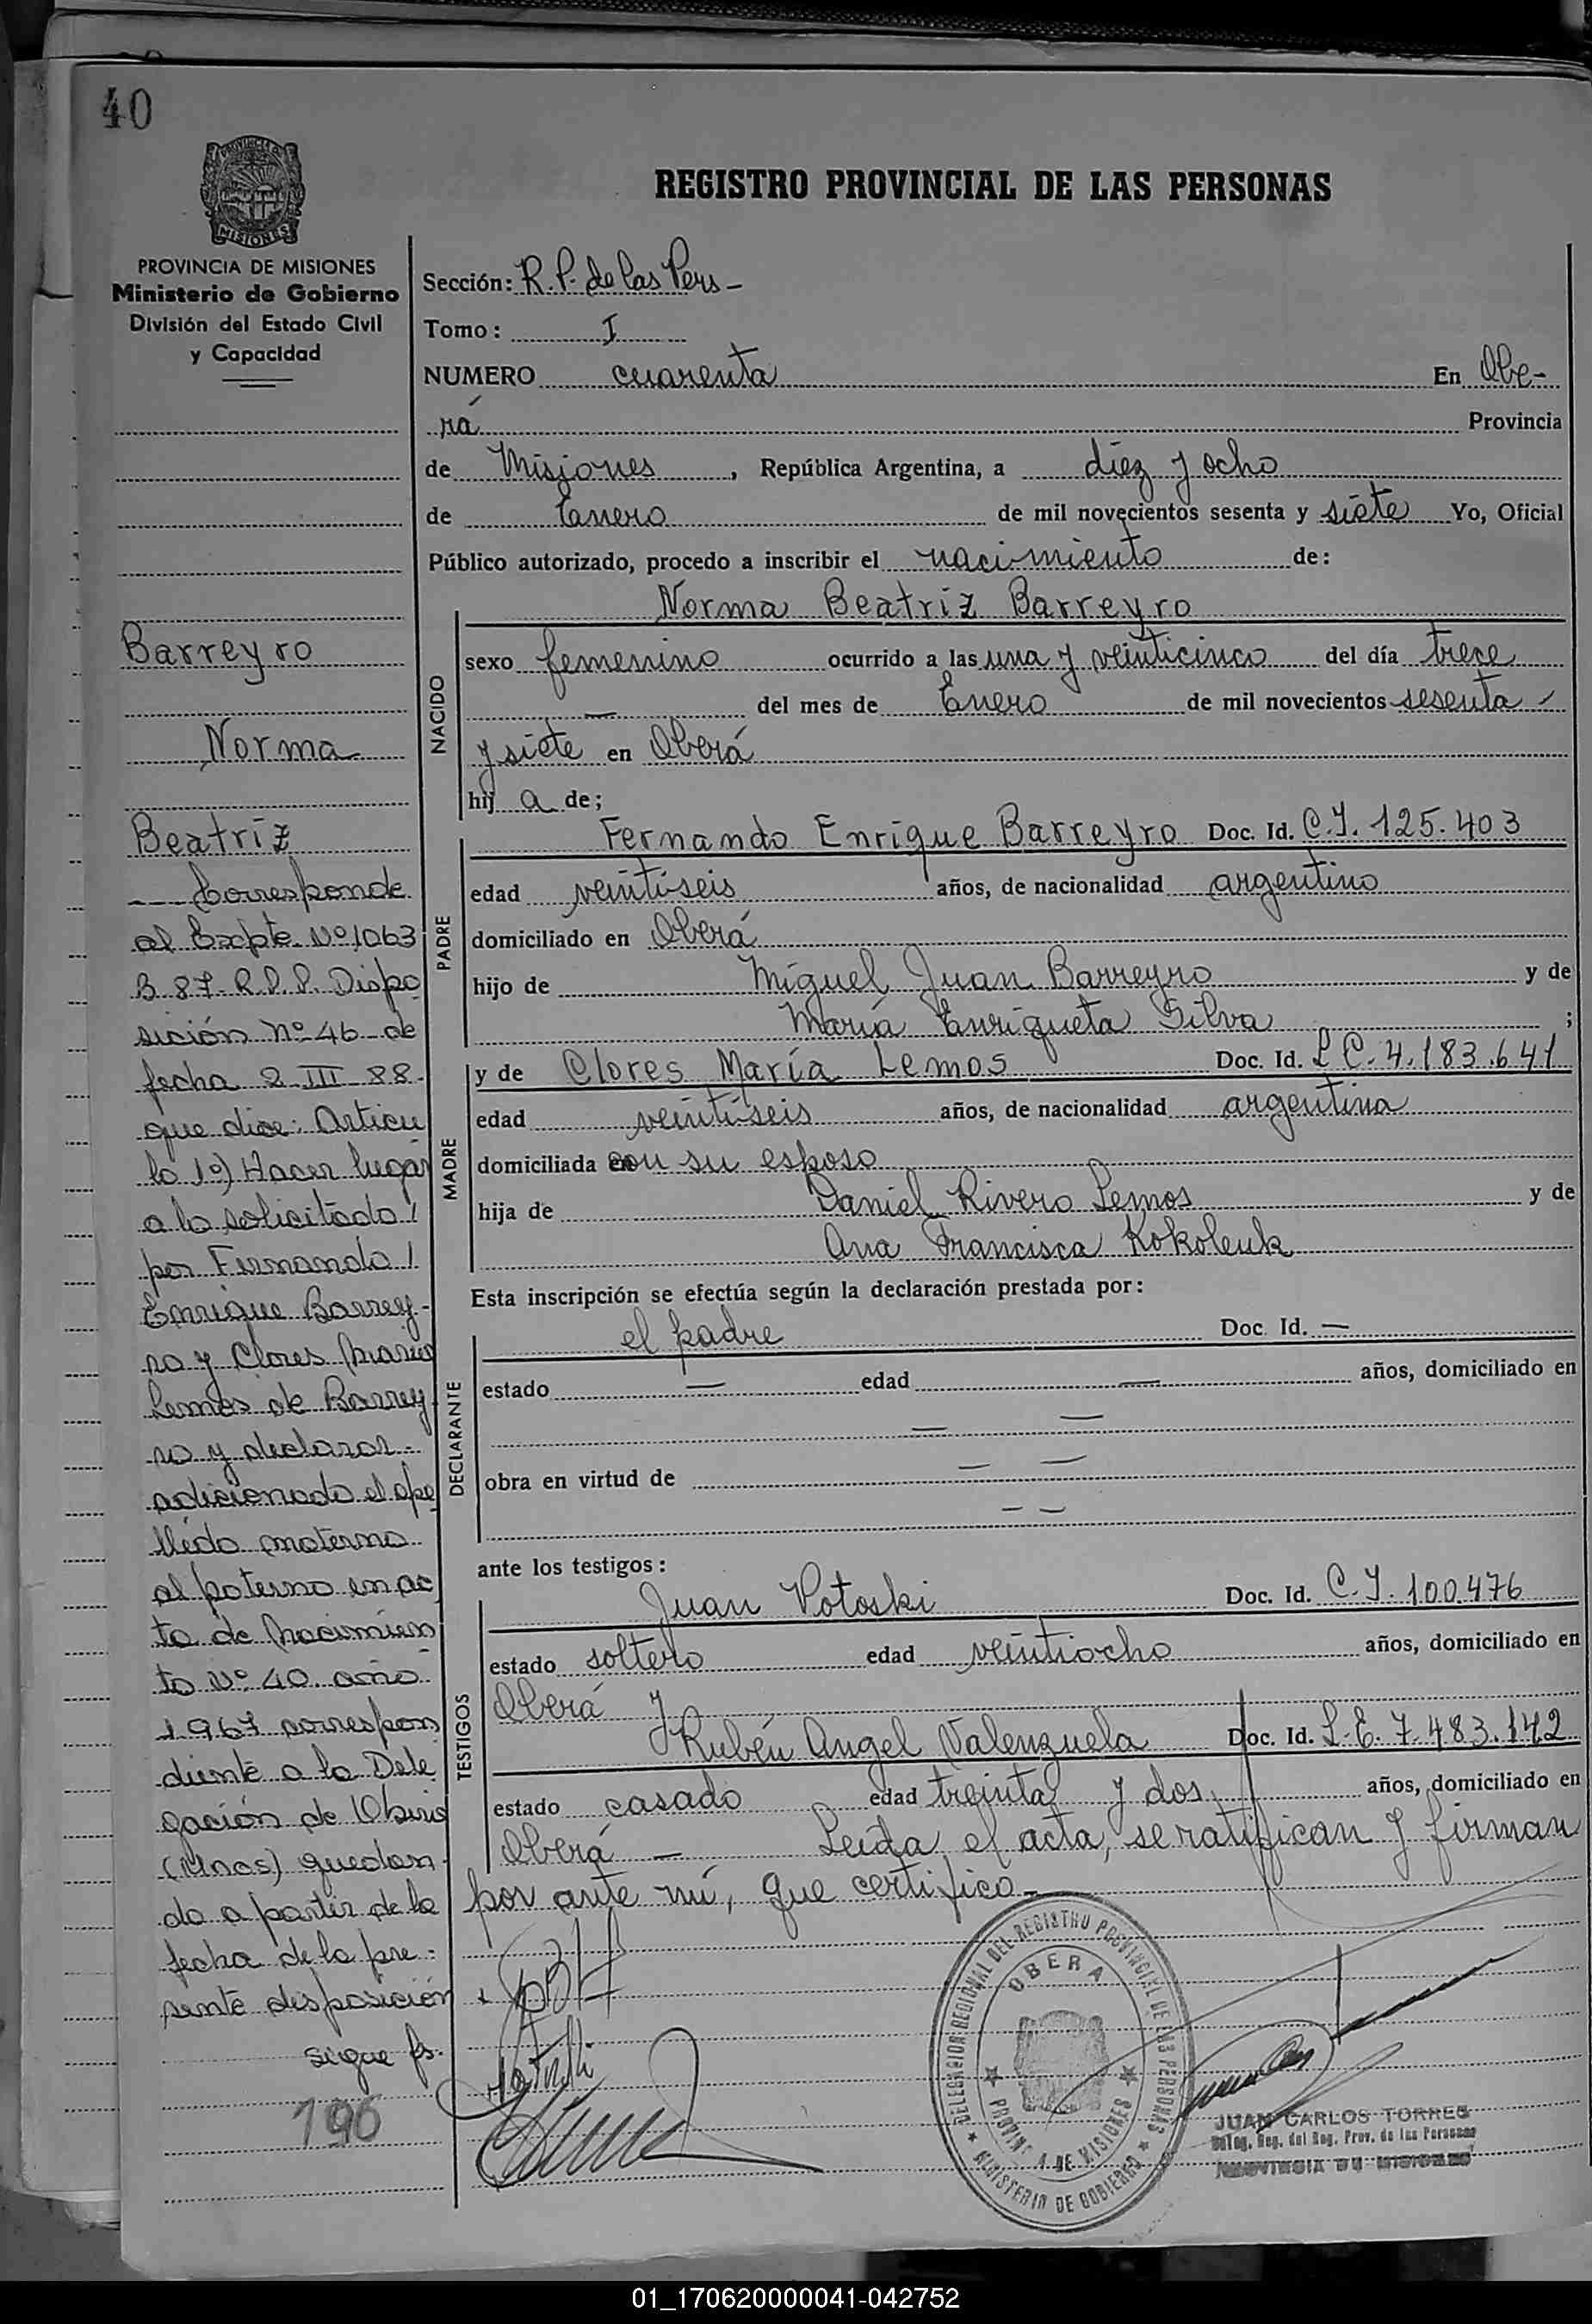 40
PROVINCIA DE
MISIONES
PROVINCIA DE MISIONES
Ministerio de Gobierno
División del Estado Civil
y Capacidad
REGISTRO PROVINCIAL DE LAS PERSONAS
Sección: R.P. de las Pers -
Tomo: I
NUMERO cuarenta En Obe-
rá Provincia
de Misiones, República Argentina, a diez y ocho
de Enero de mil novecientos sesenta y siete Yo, Oficial
Público autorizado, procedo a inscribir el nacimiento de:
NACIDO
Norma Beatriz Barreyro
sexo femenino ocurrido a las una y veinticinco del día trece
— del mes de Enero de mil novecientos sesenta -
y siete en Oberá
hij a de;
PADRE
Fernando Enrique Barreyro Doc. Id. C.I. 125.403
edad veintiseis años, de nacionalidad argentino
domiciliado en Oberá
hijo de Miguel Juan Barreyro y de
María Enriqueta Silva ;
MADRE
y de Clores María Lemos Doc. Id. L C. 4.183.641
edad veintiseis años, de nacionalidad argentina
domiciliada con su esposo
hija de Daniel Rivero Lemos y de
Ana Francisca Kokoleuk
Esta inscripción se efectúa según la declaración prestada por:
DECLARANTE
el padre Doc. Id. —
estado — edad — años, domiciliado en
— —
obra en virtud de — —
— —
ante los testigos:
TESTIGOS
Juan Potoski Doc. Id. C.I. 100.476
estado soltero edad veintiocho años, domiciliado en
Oberá y
Rubén Angel Valenzuela Doc. Id. L.E. 7.483.142
estado casado edad treinta y dos años, domiciliado en
Oberá — Leída el acta, se ratifican y firman
por ante mí, que certifico -
Barreyro
Norma
Beatriz
--- Corresponde
al Expte Nº 1063
B 87- R.P.P. Dispo
sición Nº 46 de
fecha 2 III 88.
que dice: Articu
lo 1º) Hacer lugar
a lo solicitado/
por Fernando/
Enrique Barrey-
ro y Clores María
Lemos de Barrey
ro y declarar-
adicionado el ape
llido materno
al paterno en ac
ta de Nacimien
to Nº 40 año
1967 correspon
diente a la Dele
gación de Oberá
(Mnes) quedan
do a partir de la
fecha de la pre-
sente disposición
sigue fs.
196
DELEGACION REGIONAL DEL REGISTRO PROVINCIAL DE LAS PERSONAS
OBERA
PROVINCIA DE MISIONES
MINISTERIO DE GOBIERNO
JUAN CARLOS TORRES
Deleg. Reg. del Reg. Prov. de las Personas
PROVINCIA DE MISIONES
01_170620000041-042752